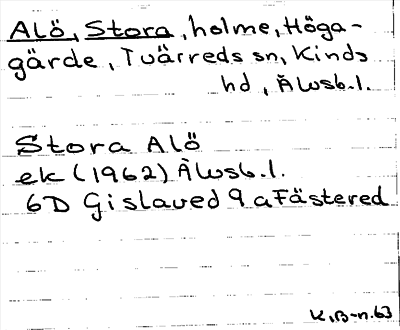 Alö, Stora, holme, Höga-
gärde, Tvärreds sn, Kinds
hd, Älvsb.l.
Stora Alö
ek (1962) Älvsb.l.
6D Gislaved 9a Fästered
K.B-n.63